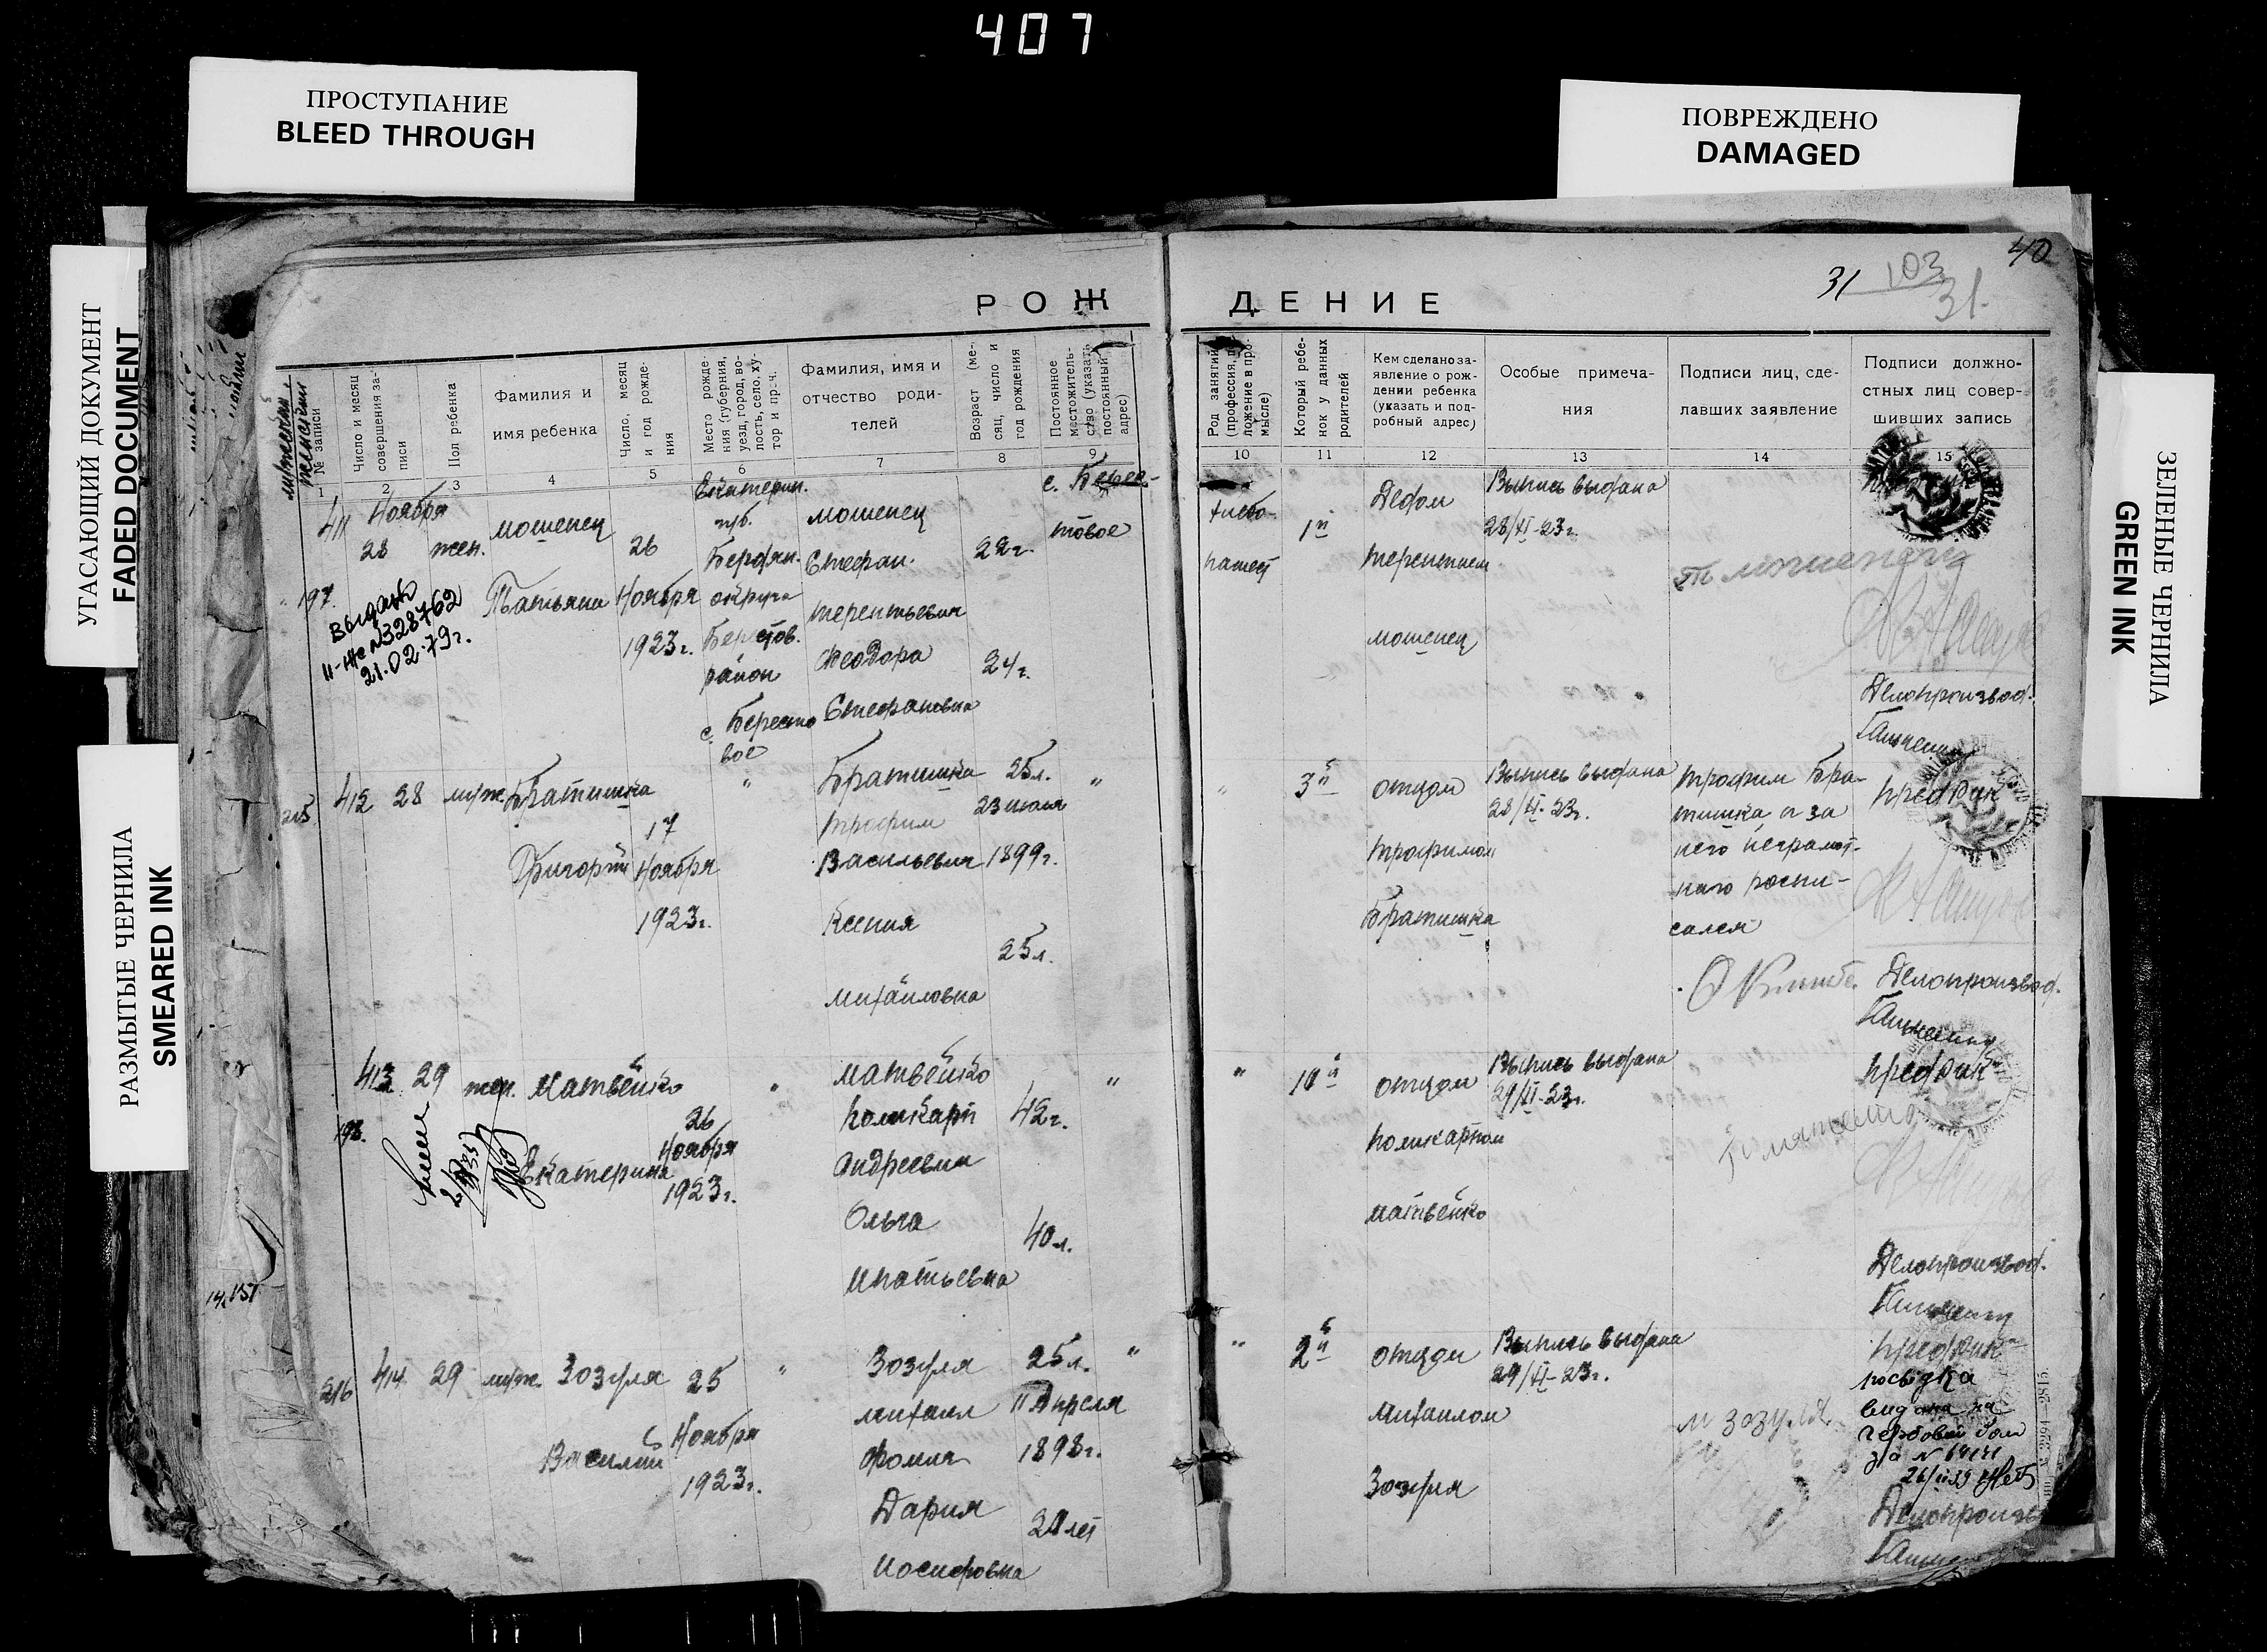 407
ПРОСТУПАНИЕ
BLEED THROUGH
ПОВРЕЖДЕНО
DAMAGED
УГАСАЮЩИЙ ДОКУМЕНТ
FADED DOCUMENT
РАЗМЫТЫЕ ЧЕРНИЛА
SMEARED INK
ЗЕЛЕНЫЕ ЧЕРНИЛА
GREEN INK
40
31
103
31.
РОЖДЕНИЕ
№ записи
Число и месяц совершения записи
Пол ребенка
Фамилия и имя ребенка
Число, месяц и год рождения
Место рождения (губерния, уезд, город, волость, село, хутор и проч.
Фамилия, имя и отчество родителей
Возраст (месяц, число и год рождения
Постоянное местожительство (указать постоянный адрес)
Род занятий (профессия, положение в промысле)
Который ребенок у данных родителей
Кем сделано заявление о рождении ребенка (указать и подробный адрес)
Особые примечания
Подписи лиц, сделавших заявление
Подписи должностных лиц совершивших запись
1 2 3 4 5 6 7 8 9 10 11 12 13 14 15
411
197.
Ноября
28
жен.
Мошенец
Татьяна
26
Ноября
1923г.
Екатерин.
губ.
Бердян.
округа
Берестов.
район
с. Бересто
вое
Мошенец
Стефан.
Терентьевич
Феодора
Стефановна
22г.
24г.
товое
Хлебо-
пашец
1й
Дедом
Терентием
Мошенец
Выпись выдана
28/XI-23г.
Делопроизвод.
выдано
II-ЖС №328762
21.02.79г.
215
412
28
муж.
Братишка
Григорий
17
Ноября
1923г.
"
Братишка
Трофим
Васильевич
Ксения
Михайловна
25л.
23 июля
1899г.
25л.
"
"
3й
отцом
Трофимом
Братишка
Выпись выдана
28/XI-23г.
Трофим Бра-
тишка а за
него неграмот-
наго роспи-
сался
ПредРик
Делопроизвод.
413
198.
29
жен.
Матвейко
Екатерина
26
Ноября
1923г.
"
Матвейко
Поликарп
Андреевич
Ольга
Игнатьевна
42г.
40л.
"
"
10й
отцом
Поликарпом
Матвейко
Выпись выдана
29/XI-23г.
ПредРик
Делопроизвод.
216
414
29
муж.
Зозуля
Василий
25
Ноября
1923г.
"
Зозуля
Михаил
Фомич
Дария
Иосифовна
25л.
11 Апреля
1898г.
"
"
2й
отцом
Михаилом
Зозуля
Выпись выдана
29/XI-23г.
М Зозуля
ПредРик